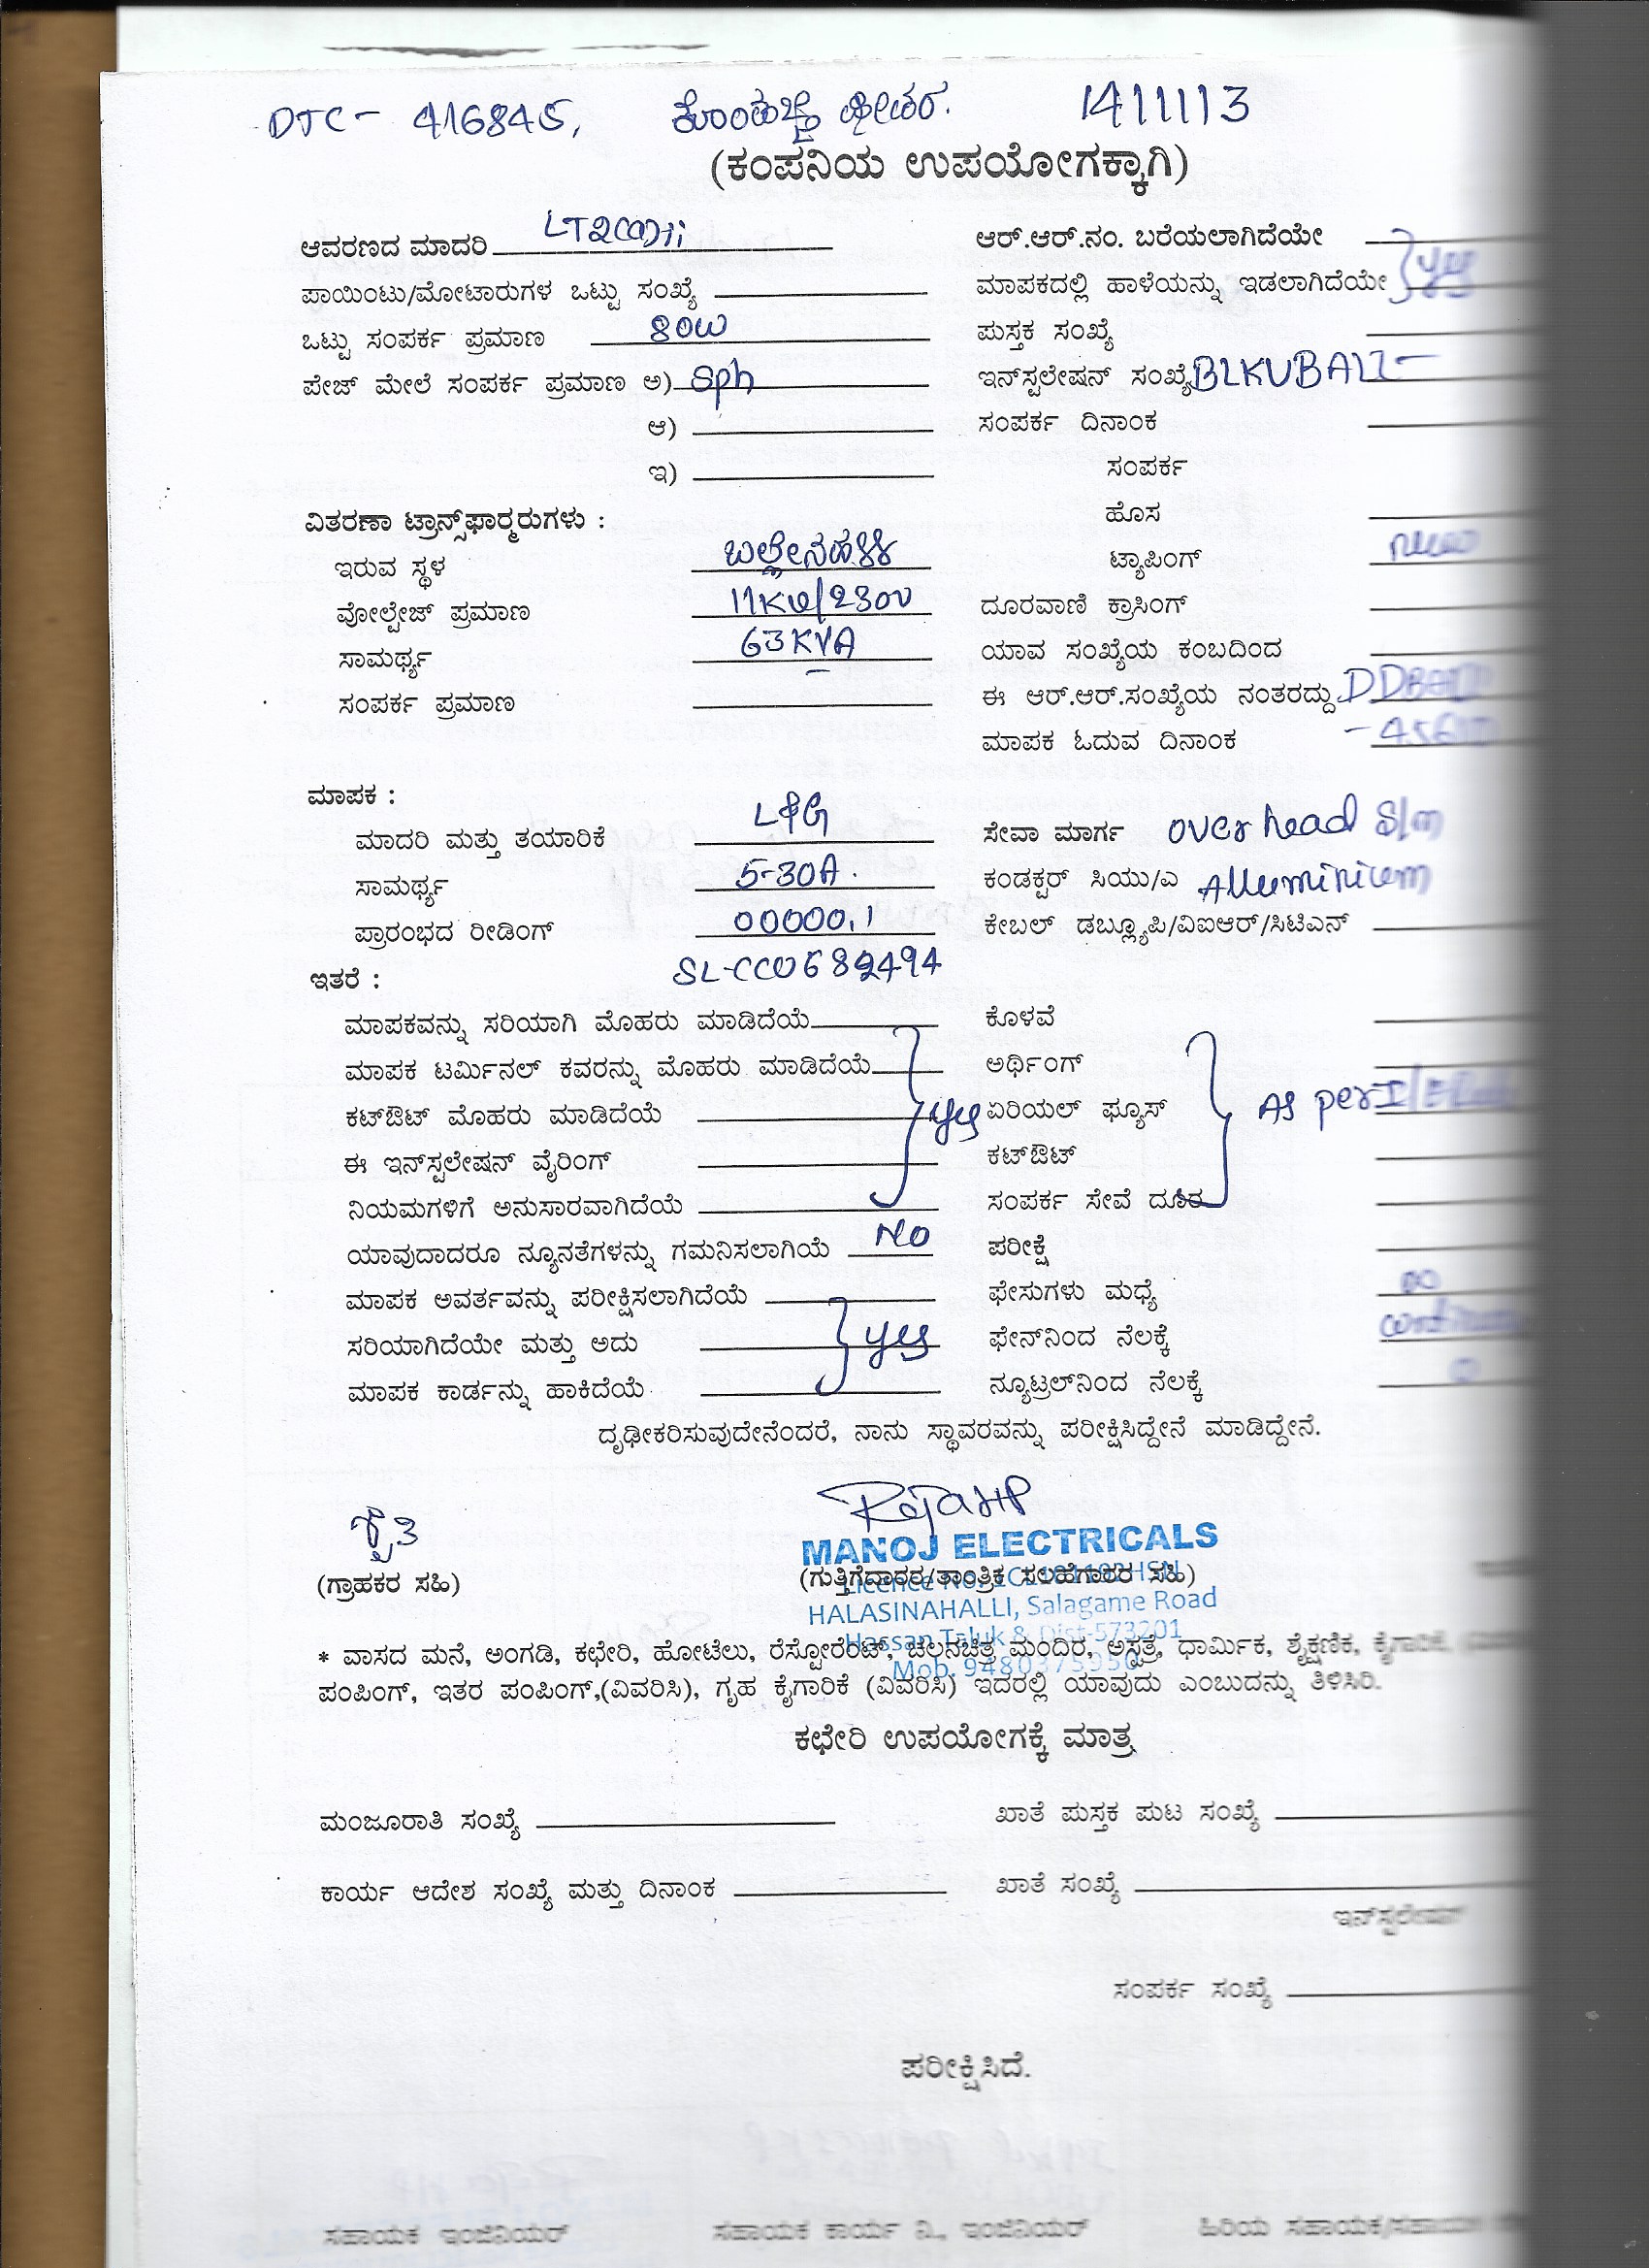 DTC - 416845, 1411113
(ಕಂಪನಿಯ ಉಪಯೋಗಕ್ಕಾಗಿ)
ಆವರಣದ ಮಾದರಿ LT2(a)ii ಆರ್.ಆರ್.ನಂ. ಬರೆಯಲಾಗಿದೆಯೇ
ಪಾಯಿಂಟು/ಮೋಟಾರುಗಳ ಒಟ್ಟು ಸಂಖ್ಯೆ ಮಾಪಕದಲ್ಲಿ ಹಾಳೆಯನ್ನು ಇಡಲಾಗಿದೆಯೇ yes
ಒಟ್ಟು ಸಂಪರ್ಕ ಪ್ರಮಾಣ 80W ಪುಸ್ತಕ ಸಂಖ್ಯೆ
ಪೇಜ್ ಮೇಲೆ ಸಂಪರ್ಕ ಪ್ರಮಾಣ ಅ) Sph ಇನ್‌ಸ್ಟಲೇಷನ್ ಸಂಖ್ಯೆ
ಆ) ಸಂಪರ್ಕ ದಿನಾಂಕ
ಇ) ಸಂಪರ್ಕ
ವಿತರಣಾ ಟ್ರಾನ್ಸ್‌ಫಾರ್‍ಮರುಗಳು : ಹೊಸ
ಇರುವ ಸ್ಥಳ ಟ್ಯಾಪಿಂಗ್
ವೋಲ್ಟೇಜ್ ಪ್ರಮಾಣ 11KV/230V ದೂರವಾಣಿ ಕ್ರಾಸಿಂಗ್
ಸಾಮರ್ಥ್ಯ 63KVA ಯಾವ ಸಂಖ್ಯೆಯ ಕಂಬದಿಂದ
ಸಂಪರ್ಕ ಪ್ರಮಾಣ ಈ ಆರ್.ಆರ್.ಸಂಖ್ಯೆಯ ನಂತರದ್ದು
ಮಾಪಕ ಓದುವ ದಿನಾಂಕ
ಮಾಪಕ :
ಮಾದರಿ ಮತ್ತು ತಯಾರಿಕೆ L&G ಸೇವಾ ಮಾರ್ಗ over head
ಸಾಮರ್ಥ್ಯ 5-30A. ಕಂಡಕ್ಟರ್ ಸಿಯು/ಎ Alluminium
ಪ್ರಾರಂಭದ ರೀಡಿಂಗ್ 00000.1 ಕೇಬಲ್ ಡಬ್ಲ್ಯೂಪಿ/ವಿಐಆರ್/ಸಿಟಿಎನ್
ಇತರೆ :
ಮಾಪಕವನ್ನು ಸರಿಯಾಗಿ ಮೊಹರು ಮಾಡಿದೆಯೆ ಕೊಳವೆ
ಮಾಪಕ ಟರ್ಮಿನಲ್ ಕವರನ್ನು ಮೊಹರು ಮಾಡಿದೆಯೆ ಅರ್ಥಿಂಗ್
ಕಟ್‌ಔಟ್ ಮೊಹರು ಮಾಡಿದೆಯೆ yes ಏರಿಯಲ್ ಫ್ಯೂಸ್ As per
ಈ ಇನ್‌ಸ್ಟಲೇಷನ್ ವೈರಿಂಗ್ ಕಟ್‌ಔಟ್
ನಿಯಮಗಳಿಗೆ ಅನುಸಾರವಾಗಿದೆಯೆ ಸಂಪರ್ಕ ಸೇವೆ ದೂರ
ಯಾವುದಾದರೂ ನ್ಯೂನತೆಗಳನ್ನು ಗಮನಿಸಲಾಗಿಯೆ No ಪರೀಕ್ಷೆ
ಮಾಪಕ ಅವರ್ತವನ್ನು ಪರೀಕ್ಷಿಸಲಾಗಿದೆಯೆ ಫೇಸುಗಳು ಮಧ್ಯೆ
ಸರಿಯಾಗಿದೆಯೇ ಮತ್ತು ಅದು yes ಫೇನ್‌ನಿಂದ ನೆಲಕ್ಕೆ
ಮಾಪಕ ಕಾರ್ಡನ್ನು ಹಾಕಿದೆಯೆ ನ್ಯೂಟ್ರಲ್‌ನಿಂದ ನೆಲಕ್ಕೆ
ದೃಢೀಕರಿಸುವುದೇನೆಂದರೆ, ನಾನು ಸ್ಥಾವರವನ್ನು ಪರೀಕ್ಷಿಸಿದ್ದೇನೆ ಮಾಡಿದ್ದೇನೆ.
MANOJ ELECTRICALS
(ಗ್ರಾಹಕರ ಸಹಿ) (ಗುತ್ತಿಗೆದಾರರ/ತಾಂತ್ರಿಕ ಸಲಹೆಗಾರರ ಸಹಿ)
HALASINAHALLI, Salagame Road
Hassan Taluk & Dist-573201
* ವಾಸದ ಮನೆ, ಅಂಗಡಿ, ಕಛೇರಿ, ಹೋಟೆಲು, ರೆಸ್ಟೋರೆಂಟ್, ಚಲನಚಿತ್ರ ಮಂದಿರ, ಅಸ್ಪತ್ರೆ, ಧಾರ್ಮಿಕ, ಶೈಕ್ಷಣಿಕ, ಕೈಗಾರಿಕೆ,
ಪಂಪಿಂಗ್, ಇತರ ಪಂಪಿಂಗ್,(ವಿವರಿಸಿ), ಗೃಹ ಕೈಗಾರಿಕೆ (ವಿವರಿಸಿ) ಇದರಲ್ಲಿ ಯಾವುದು ಎಂಬುದನ್ನು ತಿಳಿಸಿರಿ.
ಕಛೇರಿ ಉಪಯೋಗಕ್ಕೆ ಮಾತ್ರ
ಮಂಜೂರಾತಿ ಸಂಖ್ಯೆ ಖಾತೆ ಪುಸ್ತಕ ಪುಟ ಸಂಖ್ಯೆ
ಕಾರ್ಯ ಆದೇಶ ಸಂಖ್ಯೆ ಮತ್ತು ದಿನಾಂಕ ಖಾತೆ ಸಂಖ್ಯೆ
ಇನ್‌ಸ್ಟಲೇಷನ್
ಸಂಪರ್ಕ ಸಂಖ್ಯೆ
ಪರೀಕ್ಷಿಸಿದೆ.
ಸಹಾಯಕ ಇಂಜಿನಿಯರ್ ಸಹಾಯಕ ಕಾರ್ಯ ನಿ., ಇಂಜಿನಿಯರ್ ಹಿರಿಯ